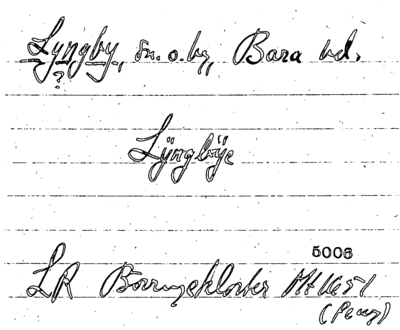 Lyngby, sn. o. by, Bara hd.
?
Lÿngbÿe
5006
LR Börringekloster 1651
(Peng)